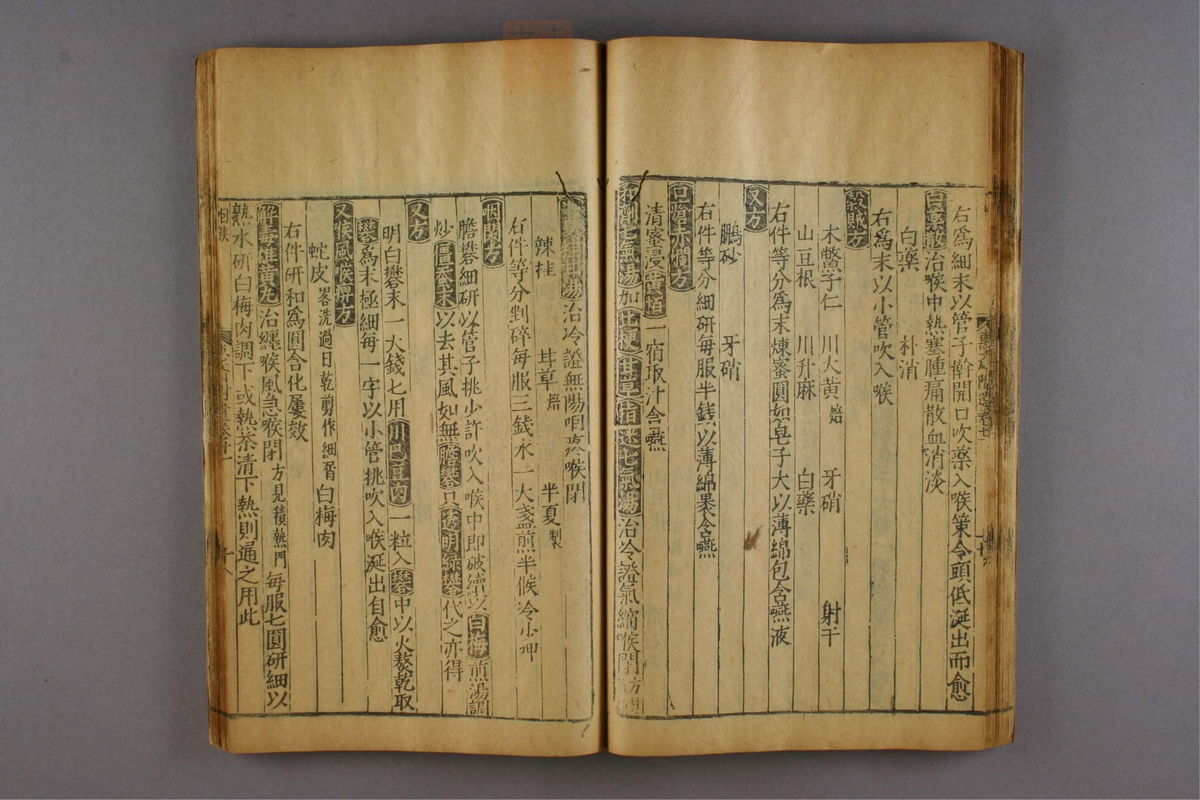 右爲細末以管子斡開口吹藥入喉策令頭低涎出而愈
白藥散治喉中熱塞腫痛散血消淡
白藥 朴消
右爲末以小管吹入喉
木鱉子仁 川大黄焙 牙硝 射干
山豆根 川升麻 白藥
右件等分爲末煉蜜圓如皂子大以薄綿包含嚥液
又方
鵬砂 牙硝
右件等分細研每服半錢以薄綿裹含嚥
口瘡赤爛方
清蜜浸黄栢一宿取汁含嚥
七氣湯加桔梗甘草 七氣湯治冷證氣縮喉閉方
湯治冷證無陽咽疼喉閉
辣桂 甘草焙 半夏製
右件等分剉碎每服三錢水一大盞煎半候冷少呷
咽閉方
膽礬細研以管子挑少許吹入喉中即破續以白梅煎湯調
炒 末以去其風如無膽礬只透明綠礬代之亦得
又方
明白礬末一大錢七用川巴豆肉一粒入礬中以火熬乾取
礬爲末極細每一字以小管挑吹入喉涎出自愈
又喉風喉痹方
蛇皮畧洗過日乾剪作細屑 白梅肉
右件研和爲圓合化屢效
解毒雄黄丸治纏喉風急喉閉方見積熱門每服七圓研細以
熱水研白梅肉調下或熱茶清下熱則通之用此
咽喉